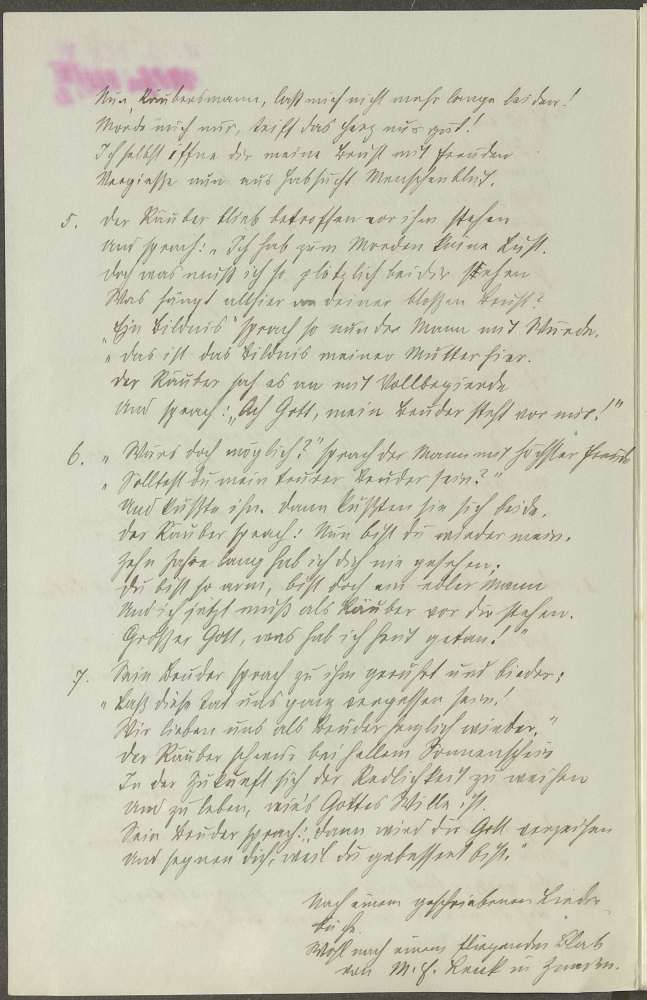 Nun, Räubersmann, laß mich nicht mehr lange leiden!
Morde mich nur, triff das Herz nur gut!
Ich selbst öffne dir meine Brust mit Freuden
Vergieße nun aus Habsucht Menschenblut.
5. Der Räuber blieb betroffen vor ihm stehen
Und sprach: „Ich hab zum Morden keine Lust.
Doch was muß ich so plötzlich bei dir sehen
Was hängt allhier an deiner bloßen Brust?
„Ein Bildnis" sprach so nun der Mann mit Würde.
„Das ist das Bildnis meiner Mutter hier.
Der Räuber sah es an mit Vollbegierde
Und sprach: „Ach Gott, mein Bruder steht vor mir!"
6. „Wärs doch möglich?" sprach der Mann mit höchster Freude
„Solltest du mein teurer Bruder sein?"
Und küßte ihn. Dann küßten sie sich beide.
Der Räuber sprach: Nun bist du wieder mein.
Zehn Jahre lang hab ich dich nie gesehen.
Du bist so arm, bist doch ein edler Mann
Und ich jetzt muß als Räuber vor dir stehen.
Großer Gott, was hab ich heut getan!"
7. Sein Bruder sprach zu ihm gerührt und bieder:
„Laß diese Tat uns ganz vergessen sein!
Wir lieben uns als Brüder herzlich wieder."
Der Räuber schwur bei hellem Sonnenschein
In der Zukunft sich der Redlichkeit zu weihen
Und zu leben, wie's Gottes Wille ist.
Sein Bruder sprach: „Dann wird dir Gott verzeihen
Und segnen dich, weil du gebessert bist."
Nach einem geschriebenen Lieder-
buche.
Wohl nach einem fliegenden Blatt
von M. H. in